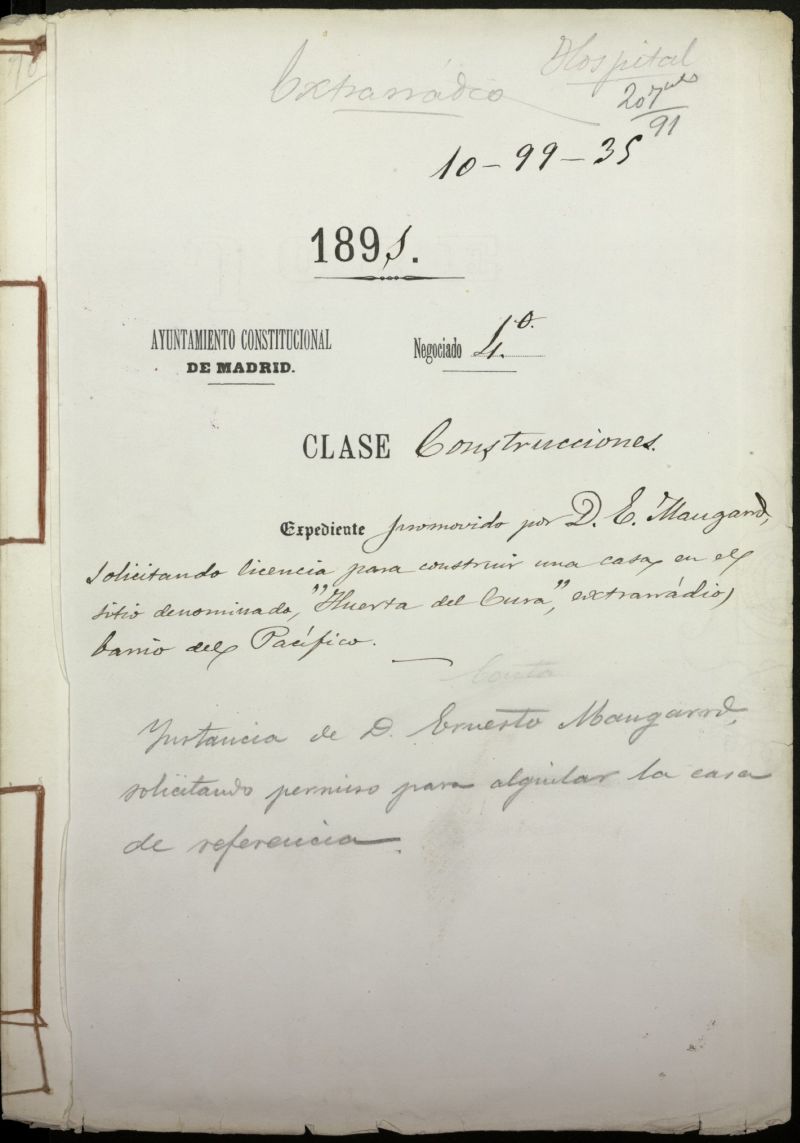 Extrarrádio
Hospital
207
91
10-99-35
1891.
AYUNTAMIENTO CONSTITUCIONAL
DE MADRID.
Negociado 4.º
CLASE Construcciones.
Expediente promovido por D. E. Maugard,
solicitando licencia para construir una casa, en el
sitio denominado, "Huerta del Cura", extrarrádio,
barrio del Pacífico.
Instancia de D. Ernesto Maugard,
solicitando permiso para alquilar la casa
de referencia.